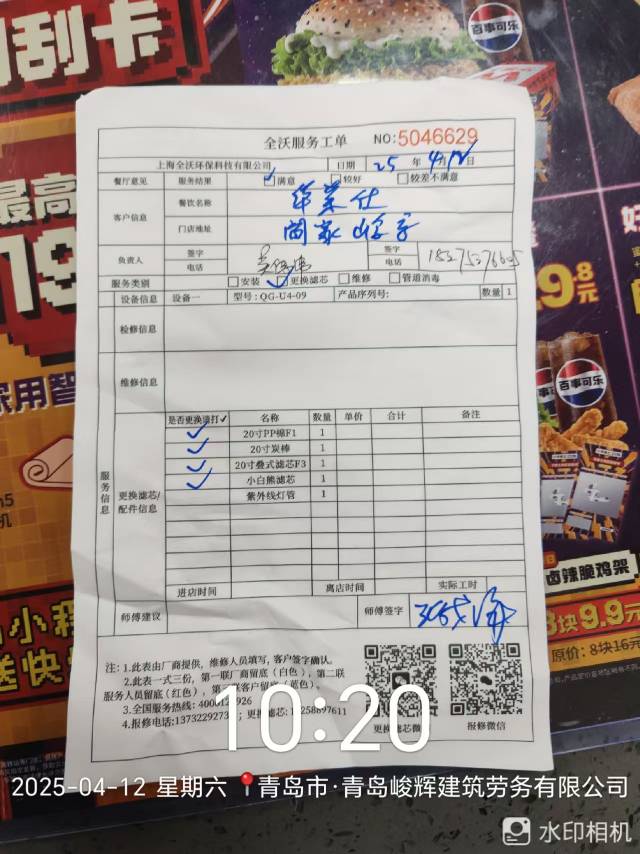 刮卡
百事可乐
最高
19
家用智
全沃服务工单 NO:5046629
上海全沃环保科技有限公司 日期 25 年 4 月 12 日
餐厅意见 服务结果 ✓满意 较好 较差不满意
客户信息 餐饮名称 华莱仕
门店地址 阎家山
负责人 签字 签字
电话 电话
服务类别 安装 ✓更换滤芯 维修 管道消毒
设备信息 设备一 型号:QG-U4-09 产品序列号: 数量 1
检修信息
维修信息
服务信息
更换滤芯/配件信息
是否更换请打✓ 名称 数量 单价 合计 备注
✓ 20寸PP棉F1 1
✓ 20寸炭棒 1
✓ 20寸叠式滤芯F3 1
✓ 小白熊滤芯 1
紫外线灯管 1
进店时间 离店时间 实际工时
师傅建议 师傅签字
注:1.此表由厂商提供,维修人员填写,客户签字确认。
2.此表一式三份,第一联厂商留底(白色),第二联
服务人员留底(红色),第三联客户留底(蓝色)。
3.全国服务热线:
4.报修电话: 更换滤芯:
更换滤芯微
报修微信
9.8
元
百事可乐
卤辣脆鸡架
3块9.9元
原价:8块16元
小程
送快
10:20
2025-04-12 星期六 青岛市·青岛峻辉建筑劳务有限公司
水印相机